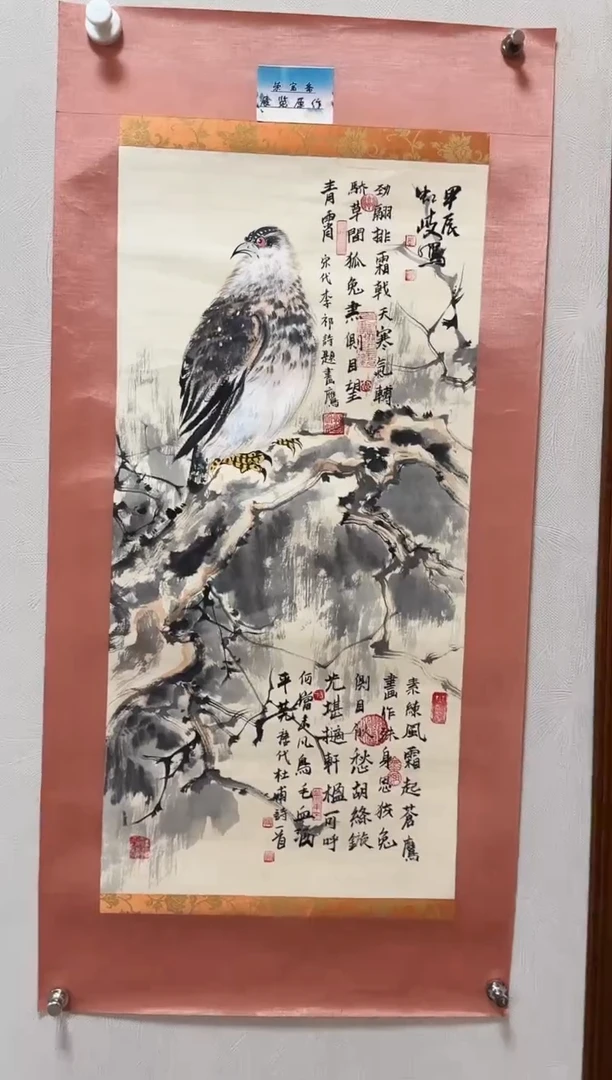 甲辰
勁翮排霜戟天寒氣轉
驕草間狐兔盡側目望
青霄 宋代李祁詩題畫鷹
素練風霜起蒼鷹
畫作殊身思狡兔
側目似愁胡絛鏇
光堪擿軒楹可呼
何當擊凡鳥毛血灑
平蕪 唐代杜甫詩一首